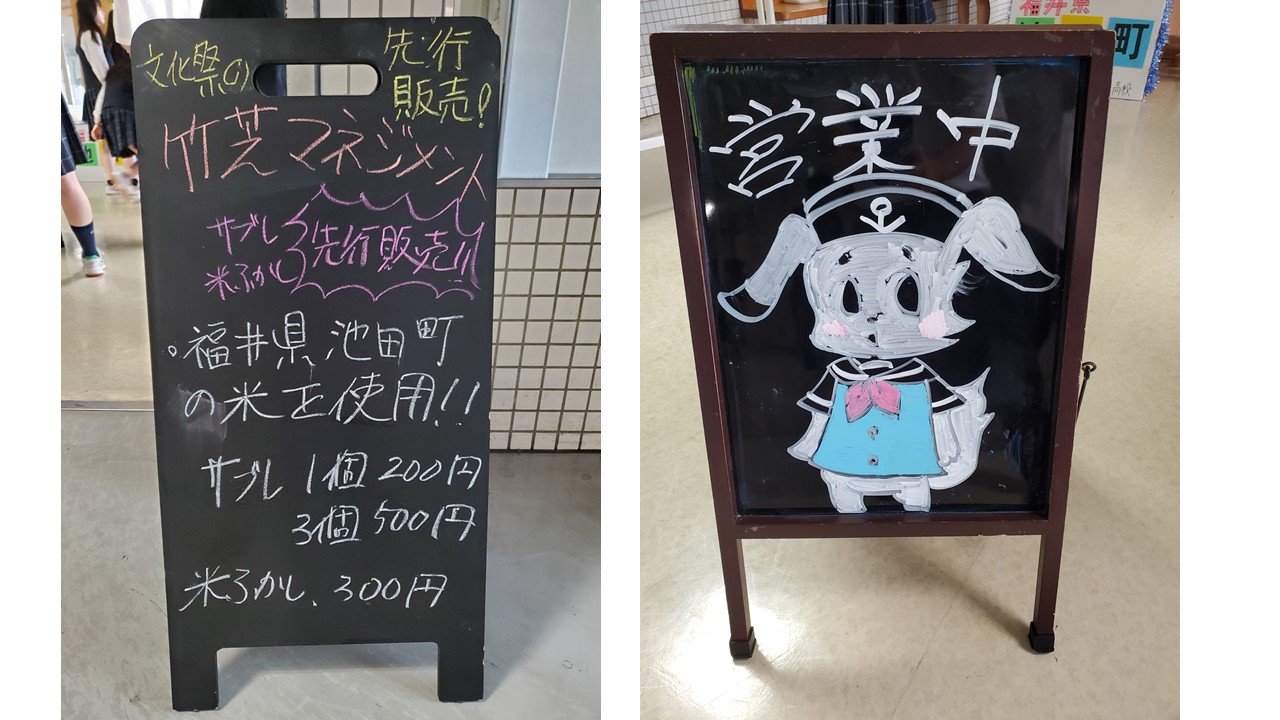 文化祭の
先行
販売!
竹芝マネジメント
サブレ
米ふかし
先行販売!!
。福井県池田町
の米を使用!!
サブレ 1個 200円
3個 500円
米ふかし、300円
営業中
福井県
町
高校